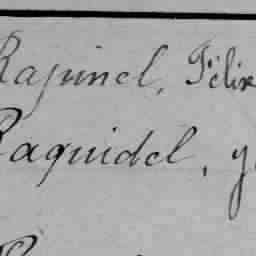 Rapinel, Félix
Raguidel, y